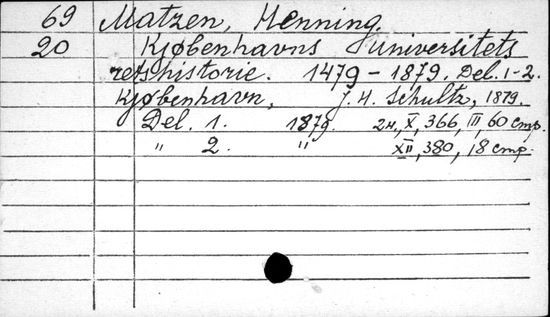 69 Matzen, Henning
20 Kjøbenhavns Universitets
retshistorie. 1479-1879. Del. 1-2.
Kjøbenhavn, J. H. Schultz, 1879.
Del. 1. 1879. 2н, X, 366, III, 60 стр.
" 2. " XII, 380, 18 стр.